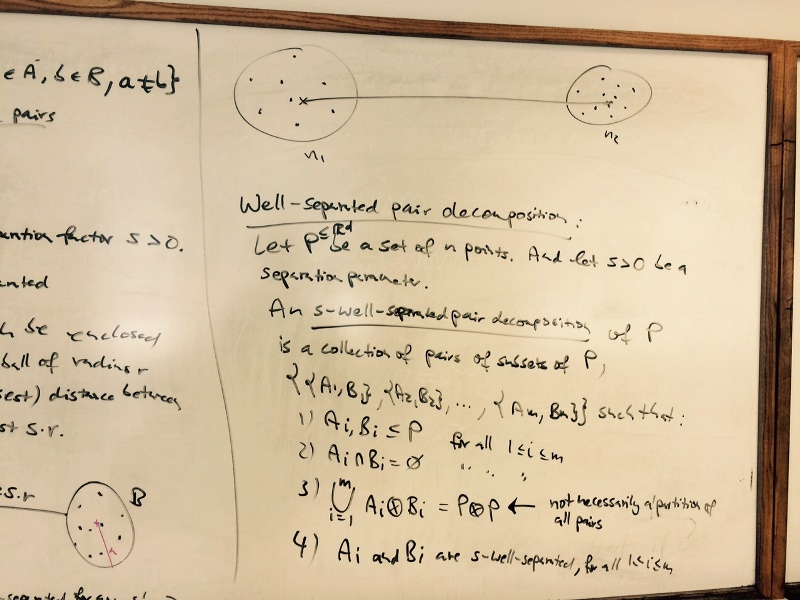 ∈ A, b ∈ B, a ≠ b}
pairs
factor s > 0.
be enclosed
ball of radius r
distance between
s.r.
s.r
B
r
n₁
n₂
Well-separated pair decomposition:
Let P ⊆ ℝᵈ be a set of n points. And let s>0 be a
separation parameter.
An s-well-separated pair decomposition of P
is a collection of pairs of subsets of P,
{{A₁,B₁}, {A₂,B₂}, ..., {Aₘ,Bₘ}} such that:
1) Aᵢ, Bᵢ ⊆ P for all 1≤i≤m
2) Aᵢ∩Bᵢ = ∅ " " "
3) ⋃ᵢ₌₁ᵐ Aᵢ⊗Bᵢ = P⊗P ← not necessarily a partition of
all pairs
4) Aᵢ and Bᵢ are s-well-separated, for all 1≤i≤m